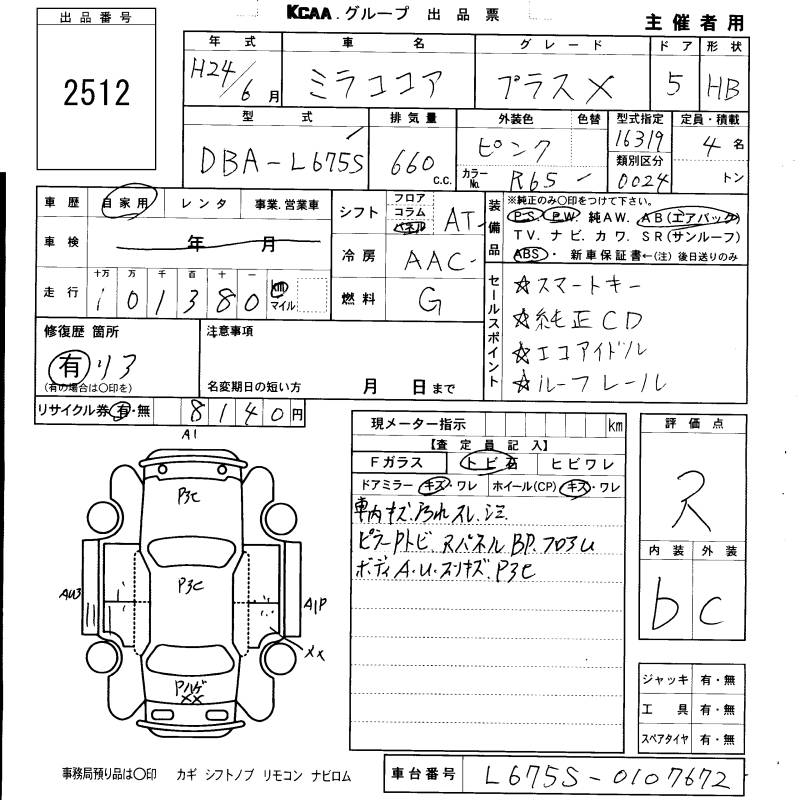 KCAA.グループ 出品票
主催者用
出品番号
2512
年式 車名 グレード ドア 形状
H24/6月 ミラココア プラスX 5 HB
型式 排気量 外装色 色替 型式指定 定員・積載
DBA-L675S 660 C.C. ピンク 16319 4名
カラーNo. R65 - 類別区分 0024 トン
車歴 自家用 レンタ 事業.営業車
車検 年 月
走行 十万 万 千 百 十 一
1 0 1 3 8 0 km マイル
シフト フロア コラム パネル AT-
冷房 AAC-
燃料 G
装備品
※純正のみ○印をつけて下さい。
P.S. P.W. 純AW. AB(エアバッグ)
TV. ナビ. カワ. SR(サンルーフ)
ABS・ 新車保証書←(注) 後日送りのみ
セールスポイント
☆スマートキー
☆純正CD
☆エコアイドル
☆ルーフレール
修復歴 箇所
有 リア
(有の場合は○印を)
注意事項
名変期日の短い方 月 日まで
リサイクル券 有・無 8140円
現メーター指示 km
【査定員記入】
Fガラス トビ石 ヒビワレ
ドアミラー キズ・ワレ ホイール(CP) キズ・ワレ
車内キズ.汚れ.スレ.シミ
ピラーPトビ.RパネルBP.フロアU
ボディA.U.スリキズ.P3C
評価点
R
内装 外装
b C
ジャッキ 有・無
工具 有・無
スペアタイヤ 有・無
A1
P3C
P3C
AU3
A1P
XX
Pハゲ
XX
事務局預り品は○印 カギ シフトノブ リモコン ナビロム
車台番号 L675S-0107672